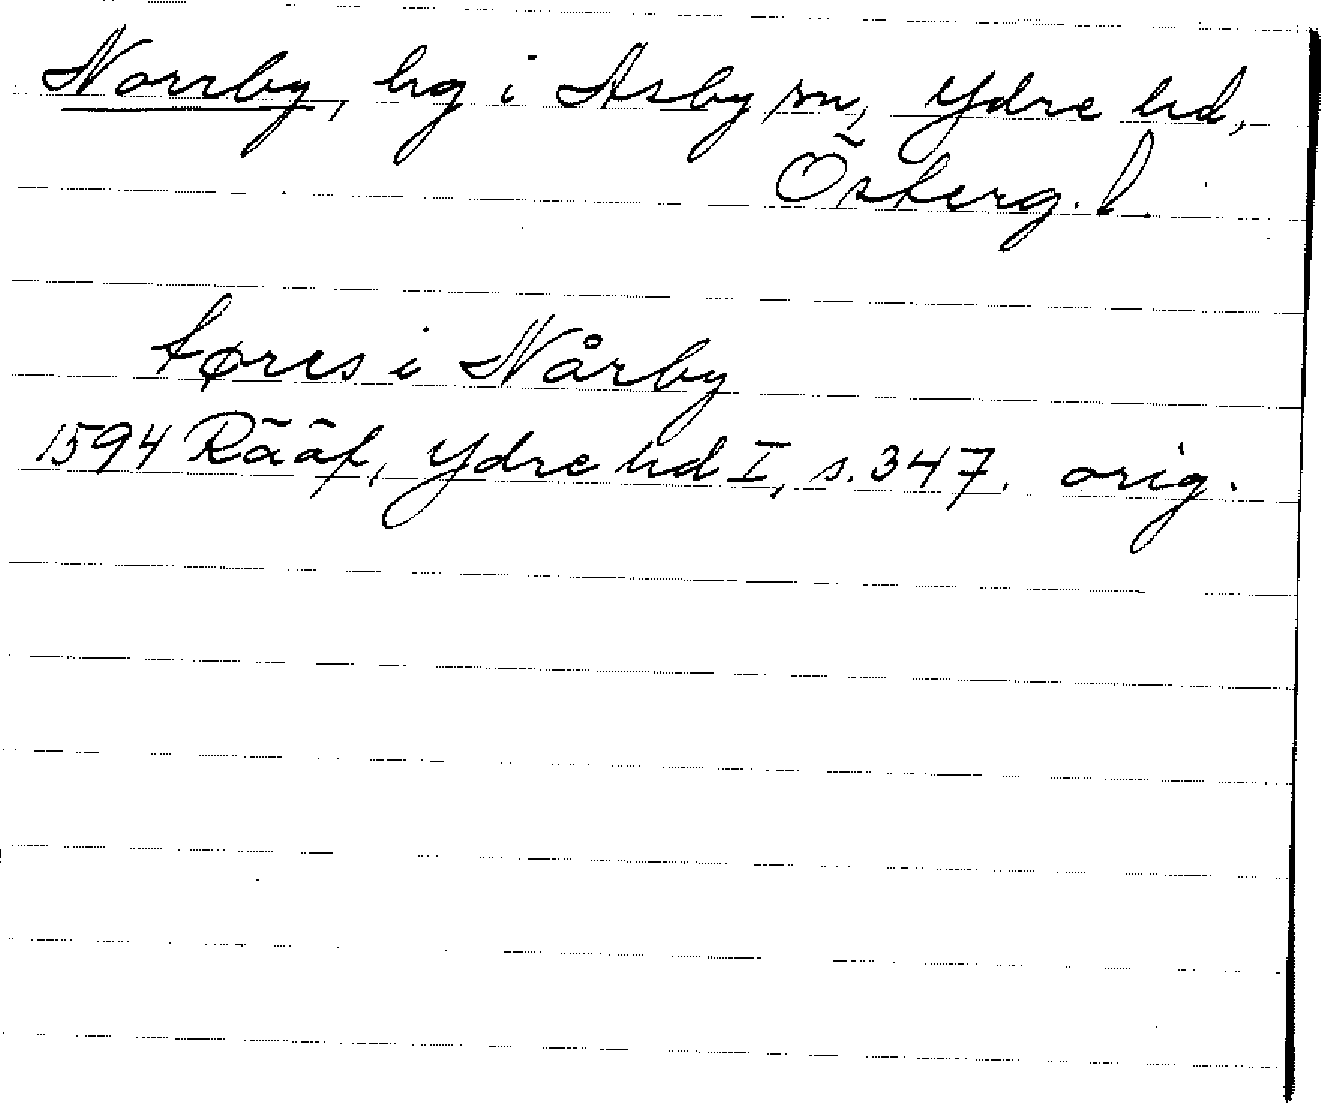 Norrby, hg i Asby sn, Ydre hd,
Österg. l.
tøres i Nårby
1594 Rääf, Ydre hd I, s. 347. orig.